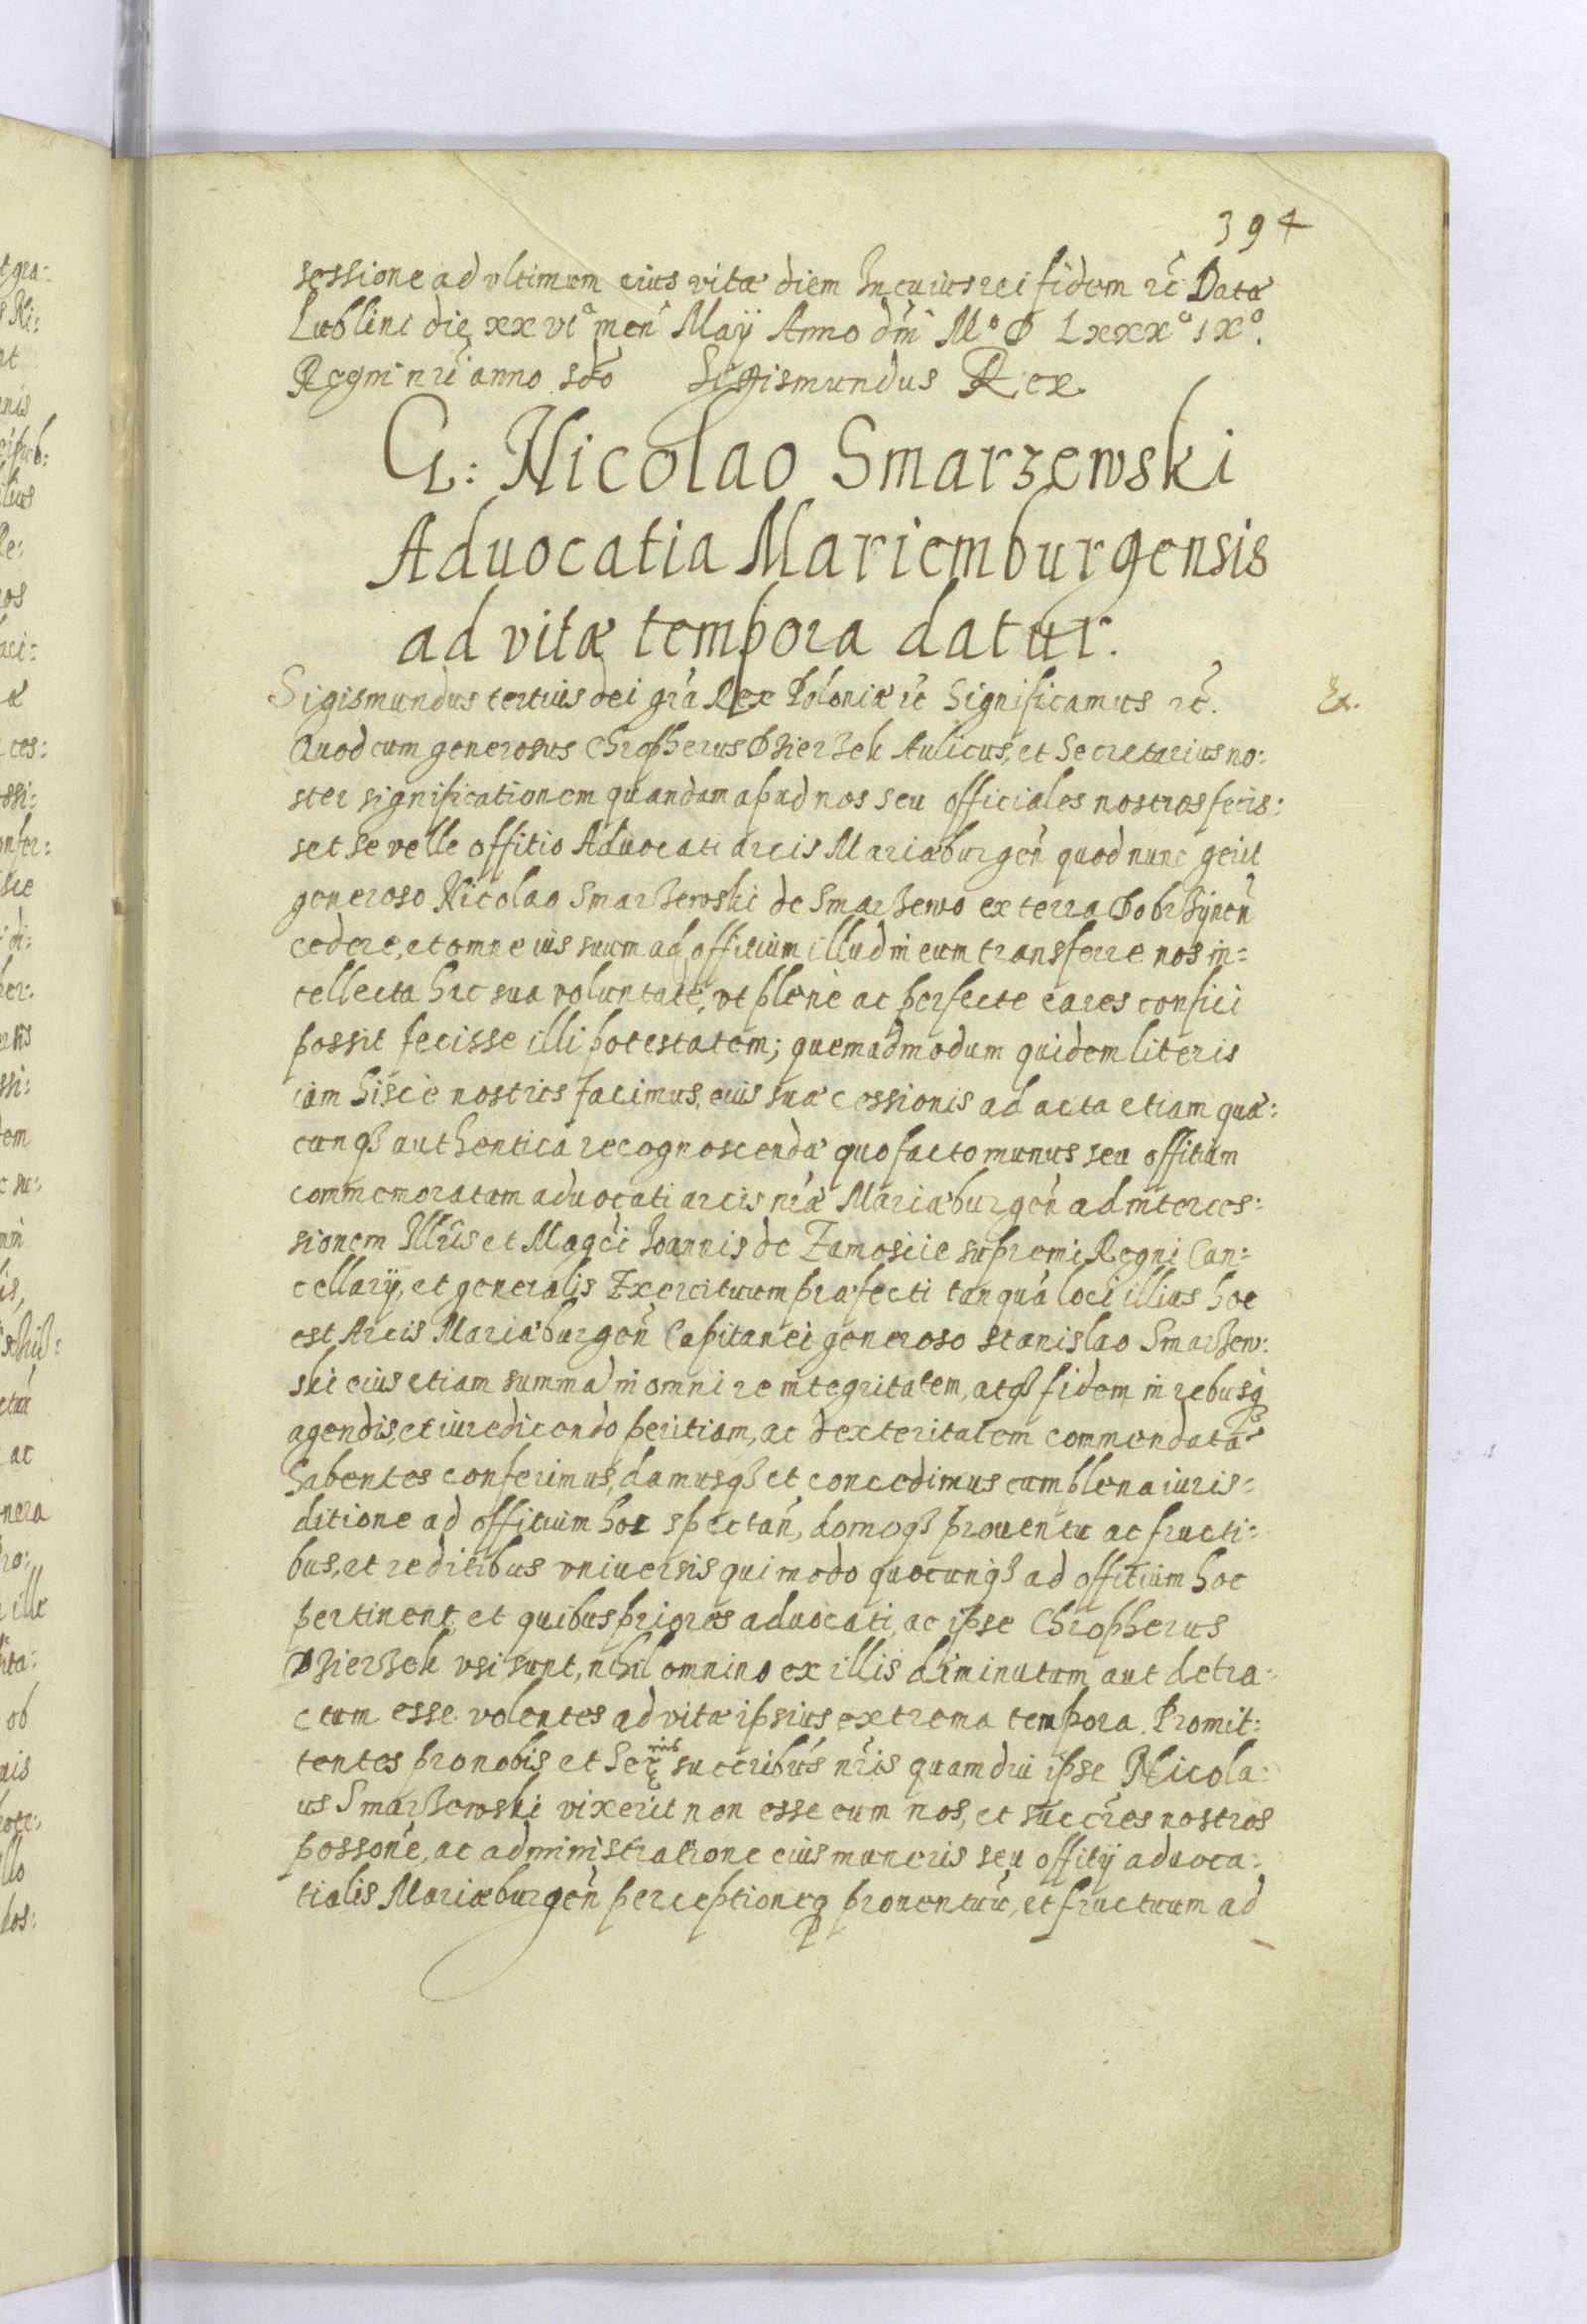 394
sessione ad vltimum eius vitæ diem In cuius rei fidem rc̃ Datæ
Lublini die xxviᵃ men̄ Maÿ Anno dm̄ Mº D Lxxxº ixº.
Regni nr̃i anno sc̃do Sigismundus Rex
G: Nicolao Smarzewski
Aduocatia Mariemburgensis
ad vitæ tempora datur.
Sigismundus tertius dei gr̃a Rex Poloniæ rc̃ Significamus rc̃.
Ex.
Quod cum generosus Chrõpherus Dzierzek Aulicus, et Secretarius no:
ster significationem quandam apud nos seu officiales nostros fecis:
set se velle offitio Aduocati arcis Mariæburgen̄ quod nunc gerit
generoso Nicolao Smarzewski de Smarzewo ex terra Dobrzynen̄
cedere, et omne ius suum ad offitium illud in eum transferre nos in=
tellecta hac sua voluntate, vt plene ac perfecte ea res confici
possit fecisse illi potestatem; quemadmodum quidem literis
iam hisce nostris facimus, eius suæ cessionis ad acta etiam quæ:
cunqȝ authentica recognoscendæ quo facto munus seu offitium
commemoratum aduocati arcis nr̃æ Mariæburgen̄ ad interces:
sionem Illr̃is et Magc̃i Ioannis de Zamoscie supremi Regni Can:
cellarÿ, et generalis Exercituum præfecti tanquã loci illius hoc
est Arcis Mariæburgen̄ Capitanei generoso Stanislao Smarzew:
ski eius etiam summã in omni re integritatem, atqȝ fidem in rebusqȝ
agendis, et iure dicendo peritiam, ac dexteritatem commendatã
habentes conferimus, damusqȝ et concedimus cum plena iuris=
ditione ad offitium hoc spectan̄, domoqȝ prouentu ac fructi:
bus, et reditibus vniuersis qui modo quocunqȝ ad offitium hoc
pertinent et quibus priores aduocati, ac ipse Chrõpherus
Dzierzek vsi sunt, nihil omnino ex illis diminutum aut detra:
ctum esse volentes ad vitæ ipsius extrema tempora. Promit:
tentes pro nobis et Serᵐⁱˢ succribus nr̃is quamdiu ipse Nicola:
us Smarzewski vixerit non esse eum nos, et succr̃es nostros
possone, ac administratione eius muneris seu offitÿ aduoca:
tialis Mariæburgen̄ perceptioneqȝ prouentuũ, et fructuum ad